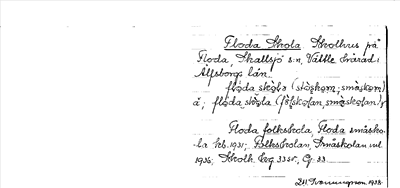 Floda Skola. Skolhus på
Floda, Skallsjö s:n, Vättle härad i
Älfsborgs län.
floda skola (skolom; småskom)
å; floda skola (folkskolan, småskolan)
Floda folkskola Floda småsko-
la kb. 1931; Folkskolan, Småskolan
1936; Skolk beg 33
1938